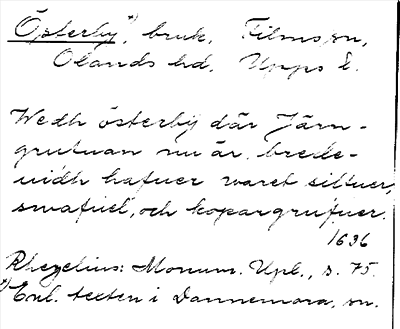 Österby*), bruk, Films sn,
Olands hd, Upps. l.
Wedh österbÿ där Järn-
grufuan nu är, brede-
uidh hafuer waret silfuer,
swafuel, och kopargrufuer.
1636
Rhezelius: Monum. Upl., s. 75.
*) Enl. texten i Dannemora, sn.